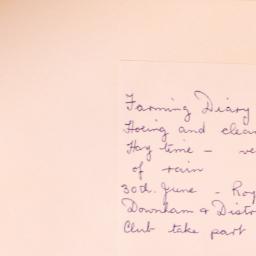 Farming Diary
Hoeing and
Hay time -
of rain
30th. June -
Downham &
Club take part